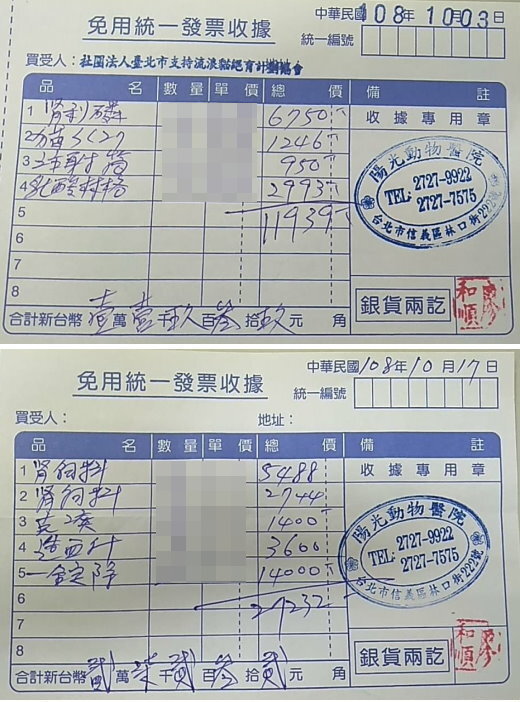 免用統一發票收據
中華民國 108年 10月 03日
統一編號
買受人：社團法人臺北市支持流浪貓絕育計劃協會
品名 數量 單價 總價 備註
1 腎利磷 6750
2 1246
3 950
4 2993
5 11939
6
7
8
收據專用章
陽光動物醫院
TEL: 2727-9922
2727-7575
台北市信義區林口街222號
銀貨兩訖
廖和順
合計新台幣 壹萬壹千玖百叁拾玖元 角
免用統一發票收據
中華民國 108年 10月 17日
統一編號
買受人： 地址：
品名 數量 單價 總價 備註
1 腎飼料 5488
2 腎飼料 2744
3 1400
4 造血針 3600
5 一錠除 14000
6 27232
7
8
收據專用章
陽光動物醫院
TEL: 2727-9922
2727-7575
台北市信義區林口街222號
銀貨兩訖
廖和順
合計新台幣 貳萬柒千貳百叁拾貳元 角